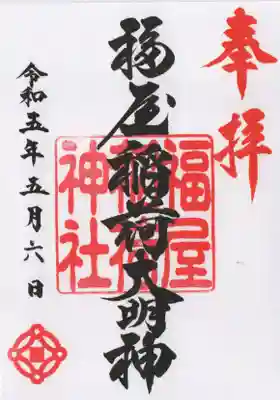 奉拝
福屋稲荷大明神
福屋稲荷神社
令和五年五月六日